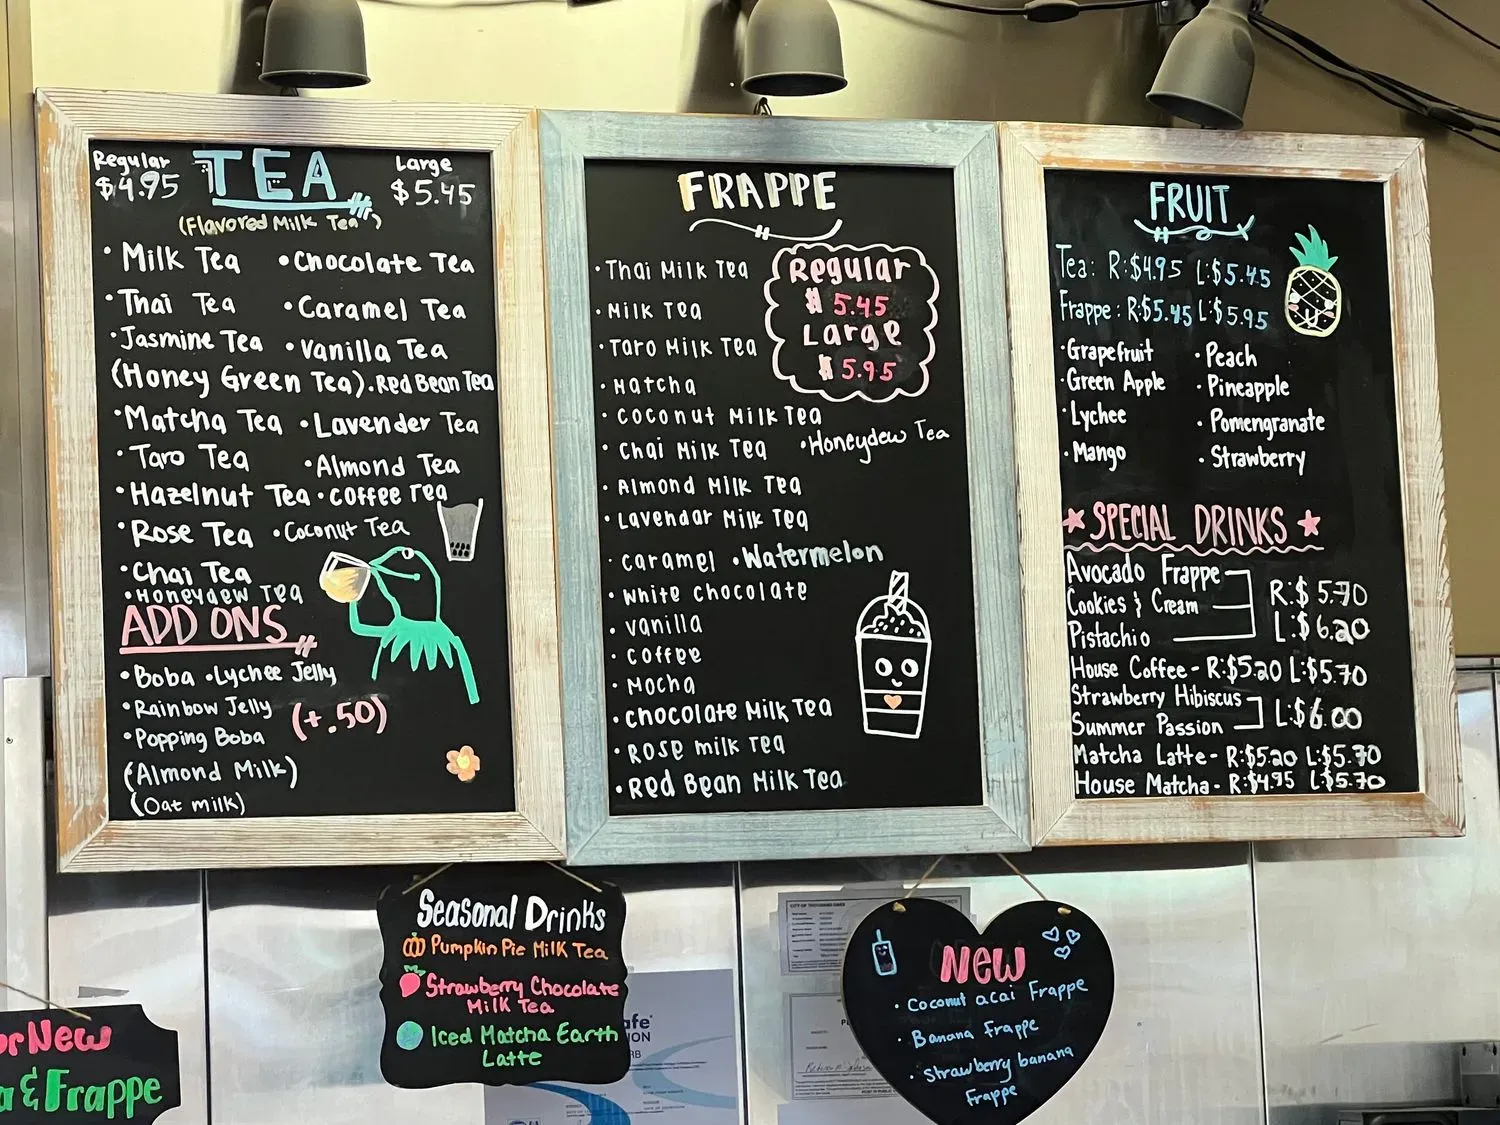 Regular TEA Large
$4.95 $5.45
(Flavored Milk Tea)
• Milk Tea • Chocolate Tea
• Thai Tea • Caramel Tea
• Jasmine Tea • Vanilla Tea
(Honey Green Tea) • Red Bean Tea
• Matcha Tea • Lavender Tea
• Taro Tea • Almond Tea
• Hazelnut Tea • Coffee Tea
• Rose Tea • Coconut Tea
• Chai Tea
• Honeydew Tea
ADD ONS
• Boba • Lychee Jelly
• Rainbow Jelly (+.50)
• Popping Boba
(Almond Milk)
(Oat milk)
FRAPPE
• Thai Milk Tea
• Milk Tea
• Taro Milk Tea
• Matcha
• Coconut Milk Tea
• Chai Milk Tea • Honeydew Tea
• Almond Milk Tea
• Lavendar Milk Tea
• Caramel • Watermelon
• White Chocolate
• Vanilla
• Coffee
• Mocha
• Chocolate Milk Tea
• Rose milk Tea
• Red Bean Milk Tea
Regular
$ 5.45
Large
$ 5.95
FRUIT
Tea: R:$4.95 L:$5.45
Frappe: R:$5.45 L:$5.95
• Grapefruit • Peach
• Green Apple • Pineapple
• Lychee • Pomengranate
• Mango • Strawberry
★ SPECIAL DRINKS ★
Avocado Frappe
Cookies & Cream R:$5.70
Pistachio L:$6.20
House Coffee - R:$5.20 L:$5.70
Strawberry Hibiscus
Summer Passion L:$6.00
Matcha Latte - R:$5.20 L:$5.70
House Matcha - R:$4.95 L:$5.70
Seasonal Drinks
Pumpkin Pie Milk Tea
Strawberry Chocolate
Milk Tea
Iced Matcha Earth
Latte
New
• Coconut acai Frappe
• Banana Frappe
• Strawberry banana
Frappe
New
& Frappe
CITY OF THOUSAND OAKS